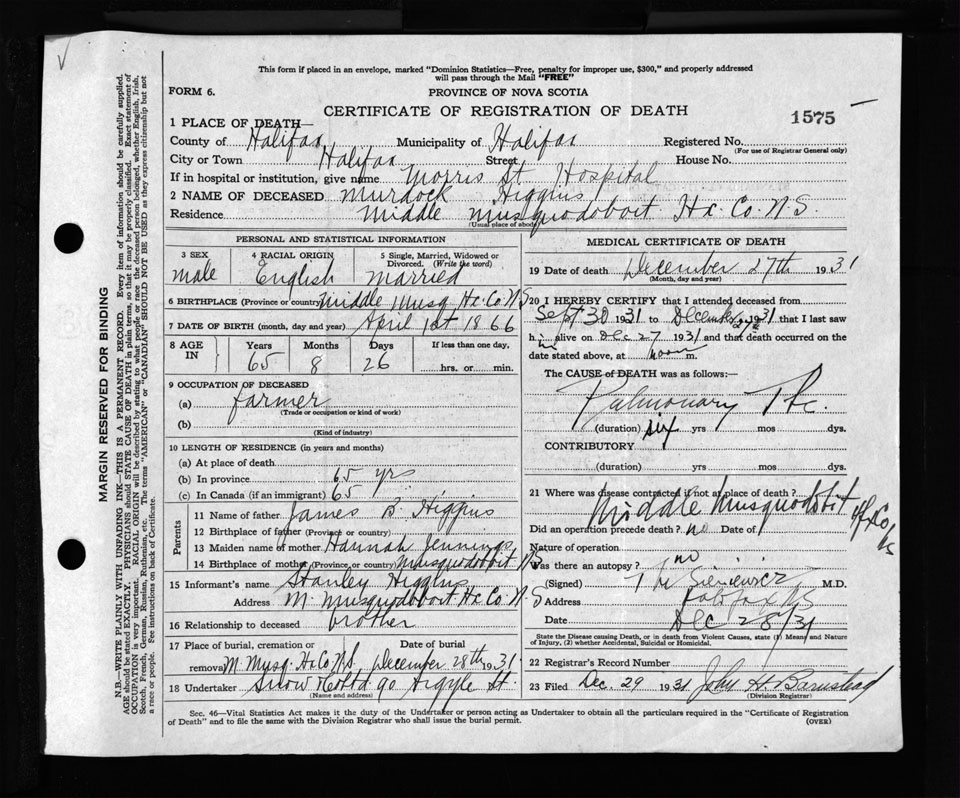 This form if placed in an envelope, marked "Dominion Statistics—Free, penalty for improper use, $300," and properly addressed
will pass through the Mail "FREE"
FORM 6. PROVINCE OF NOVA SCOTIA
CERTIFICATE OF REGISTRATION OF DEATH 1575
1 PLACE OF DEATH—
County of Halifax Municipality of Halifax Registered No.
(For use of Registrar General only)
City or Town Halifax Street House No.
If in hospital or institution, give name Morris St Hospital
2 NAME OF DECEASED Murdock Higgins
Residence Middle Musquodoboit Hx. Co. N.S.
(Usual place of abode)
PERSONAL AND STATISTICAL INFORMATION
3 SEX 4 RACIAL ORIGIN 5 Single, Married, Widowed or Divorced. (Write the word)
male English married
6 BIRTHPLACE (Province or country) Middle Musq Hx. Co. N S
7 DATE OF BIRTH (month, day and year) April 1st 1866
8 AGE IN Years Months Days If less than one day,
65 8 26 hrs. or min.
9 OCCUPATION OF DECEASED
(a) farmer
(Trade or occupation or kind of work)
(b)
(Kind of industry)
10 LENGTH OF RESIDENCE (in years and months)
(a) At place of death
(b) In province 65 yrs
(c) In Canada (if an immigrant) 65
Parents
11 Name of father James B. Higgins
12 Birthplace of father (Province or country)
13 Maiden name of mother Hannah Jennings
14 Birthplace of mother (Province or country) Musquodoboit N S
15 Informant's name Stanley Higgins
Address M. Musquodoboit Hx Co. N S
16 Relationship to deceased brother
17 Place of burial, cremation or removal Date of burial
M. Musq. Hx Co N.S. December 28th 1931
18 Undertaker Snow & Co Ltd 90 Argyle St.
(Name and address)
MEDICAL CERTIFICATE OF DEATH
19 Date of death December 27th 1931
(Month, day and year)
20 I HEREBY CERTIFY that I attended deceased from
Sept 30 1931 to December 27 1931 that I last saw
him alive on Dec 27 1931 and that death occurred on the
date stated above, at noon m.
The CAUSE of DEATH was as follows:—
Pulmonary Tbc.
(duration) six yrs mos dys.
CONTRIBUTORY
(duration) yrs mos dys.
21 Where was disease contracted if not at place of death?
Middle Musquodobit Hx Co NS
Did an operation precede death? no Date of
Nature of operation
Was there an autopsy? no
(Signed) Sieniewicz M.D.
Address Halifax NS
Date Dec 28/31
State the Disease causing Death, or in death from Violent Causes, state (1) Means and Nature of Injury, (2) whether Accidental, Suicidal or Homicidal.
22 Registrar's Record Number
23 Filed Dec. 29 1931 John H. Barnstead
(Division Registrar)
Sec. 46—Vital Statistics Act makes it the duty of the Undertaker or person acting as Undertaker to obtain all the particulars required in the "Certificate of Registration
of Death" and to file the same with the Division Registrar who shall issue the burial permit. (OVER)
MARGIN RESERVED FOR BINDING
N.B.—WRITE PLAINLY WITH UNFADING INK—THIS IS A PERMANENT RECORD. Every item of information should be carefully supplied.
AGE should be stated EXACTLY. PHYSICIANS should STATE CAUSE OF DEATH in plain terms, so that it may be properly classified. Exact statement of
OCCUPATION is very important. RACIAL ORIGIN will be described by stating to what people or race the deceased person belonged, whether English, Irish,
Scotch, French, German, Russian, Ruthenian, etc. The terms "AMERICAN" or "CANADIAN" SHOULD NOT BE USED as they express citizenship but not
a race or people. See instructions on back of Certificate.